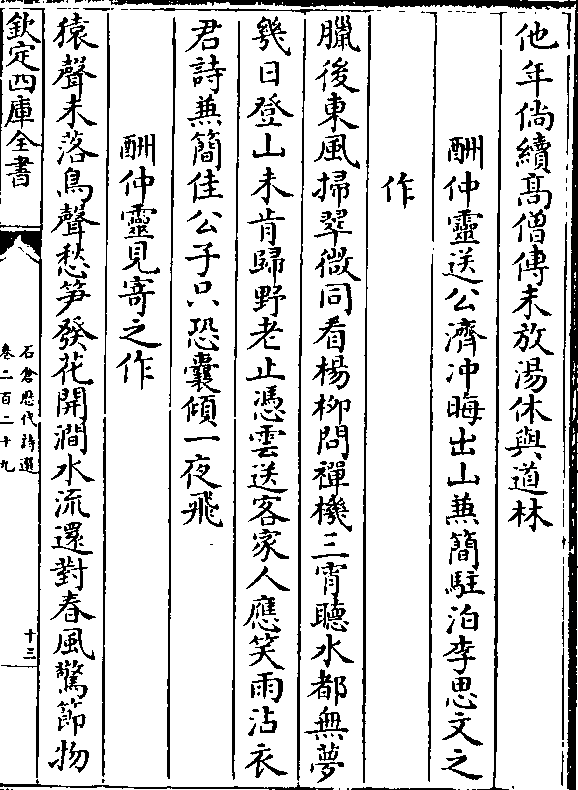 他年倘續髙僧傳未放湯休與道林
酬仲靈送公濟冲晦出山兼簡駐泊李思文之
作
臘後東風掃翠微同看楊柳問禪機三宵聽水都無夢
幾日登山未肯歸野老止憑雲送客家人應笑雨沾衣
君詩兼簡佳公子只恐囊傾一夜飛
酬仲靈見寄之作
猿聲未落鳥聲愁笋發花開澗水流還對春風驚節物
欽定四庫全書
石倉歴代詩選
卷二百二十九
十三